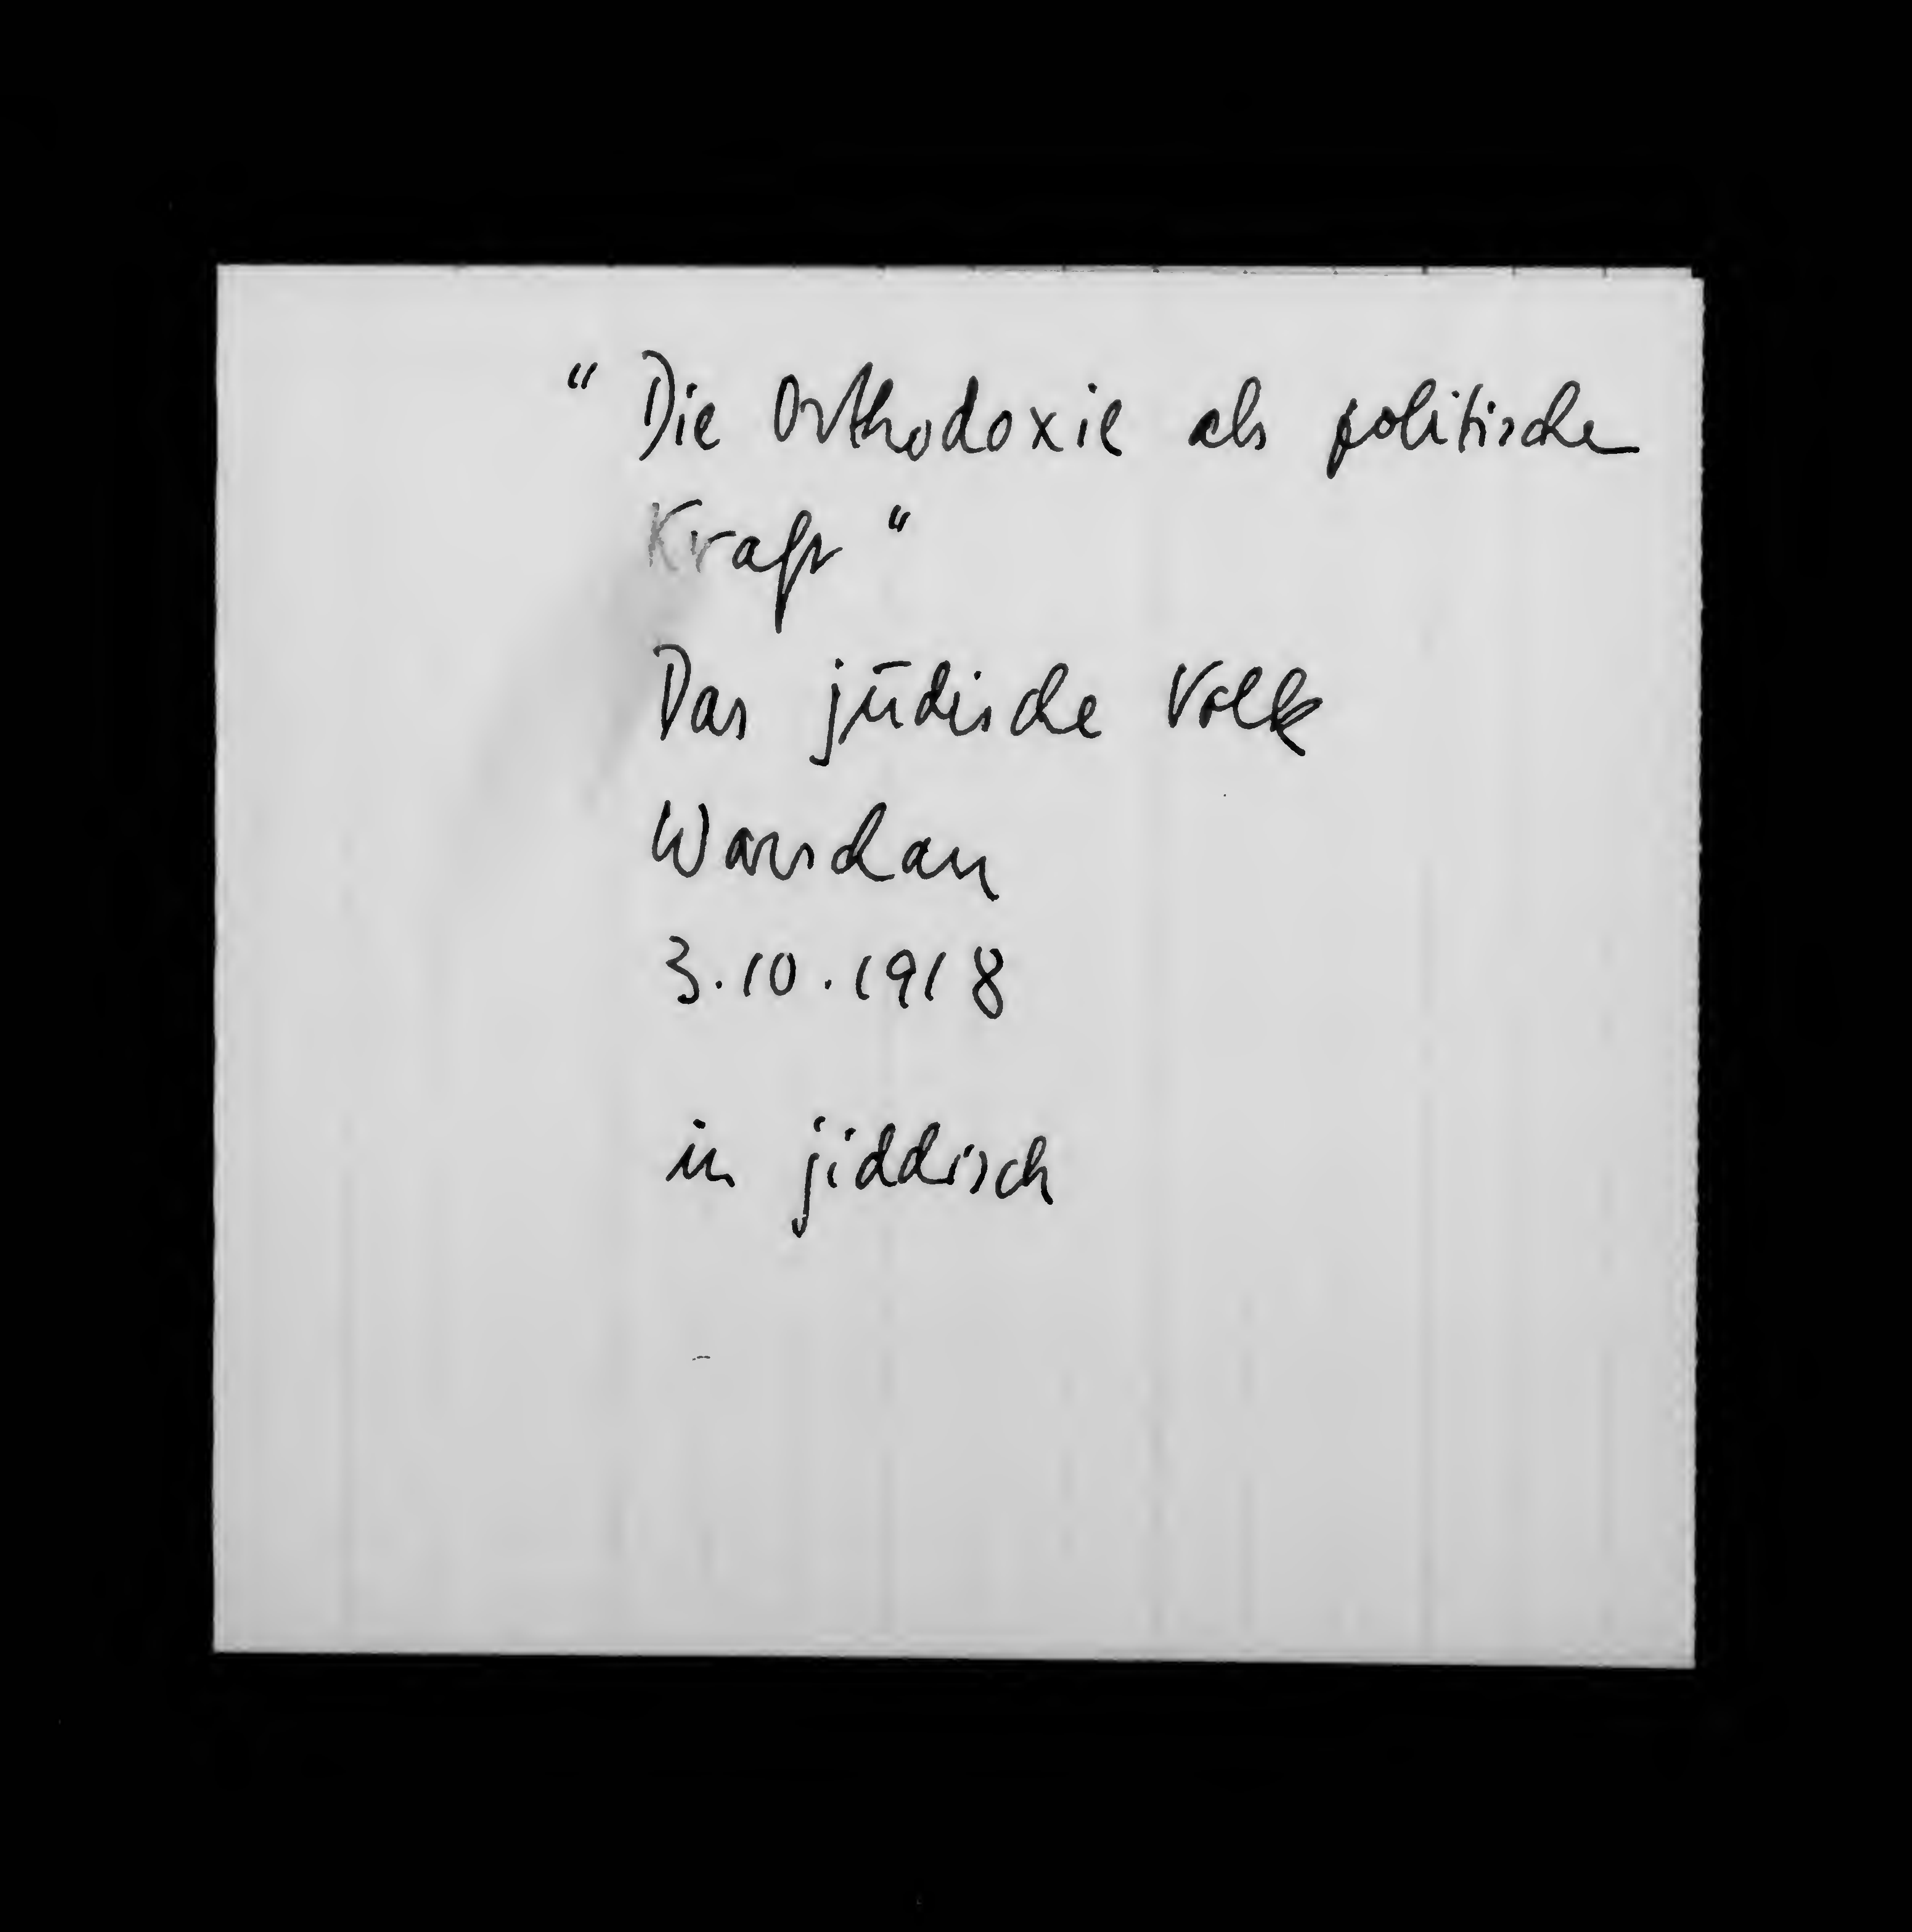 “ Die Orthodoxie als politische
Kraft “
Das jüdische Volk
Warschau
3.10.1918
in jiddisch